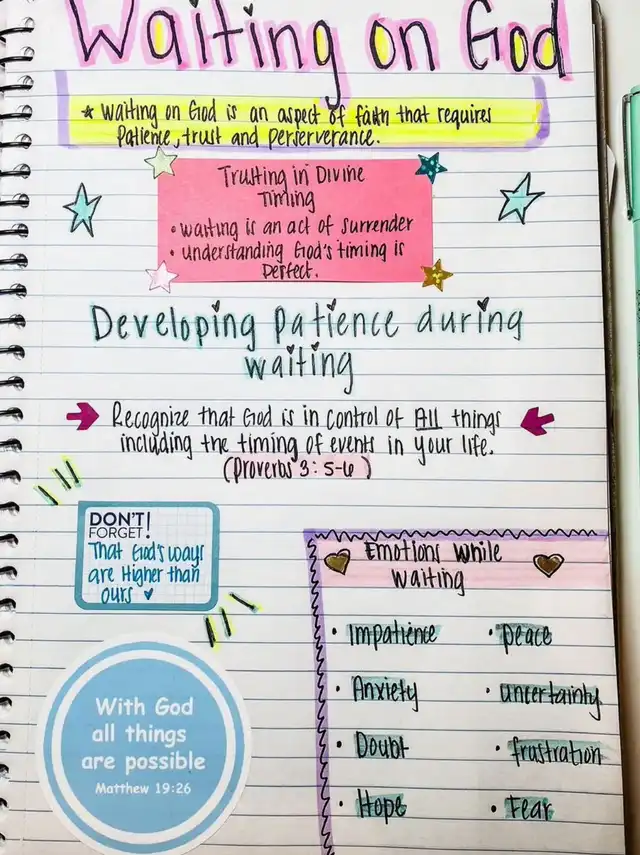 Waiting on God
* Waiting on God is an aspect of faith that requires
Patience, trust and perserverance.
Trusting in Divine
Timing
• waiting is an act of surrender
• understanding God's timing is
perfect.
Developing patience during
waiting
Recognize that God is in control of All things
including the timing of events in your life.
(Proverbs 3:5-6)
DON'T
FORGET!
That God's ways
are Higher than
ours
Emotions While
Waiting
• Impatience
• peace
• Anxiety
• uncertainty
• Doubt
• frustration
• Hope
• Fear
With God
all things
are possible
Matthew 19:26